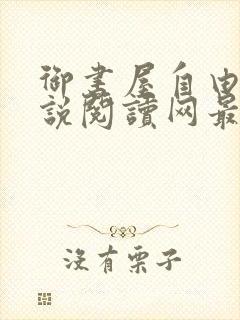 御書屋自由
說閱讀网最
沒有栗子